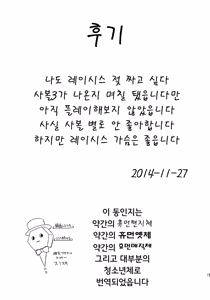 후기
나도 레이시스 젖 짜고 싶다
사볼3가 나온지 며칠 됐읍니다만
아직 플레이해보지 않았읍니다
사실 사볼 별로 안 좋아합니다
하지만 레이시스 가슴은 좋읍니다
2014-11-27
이 동인지는
약간의 휴먼편지체
약간의 휴먼옛체
약간의 휴먼매직체
그리고 대부분의
청소년체로
번역되었읍니다